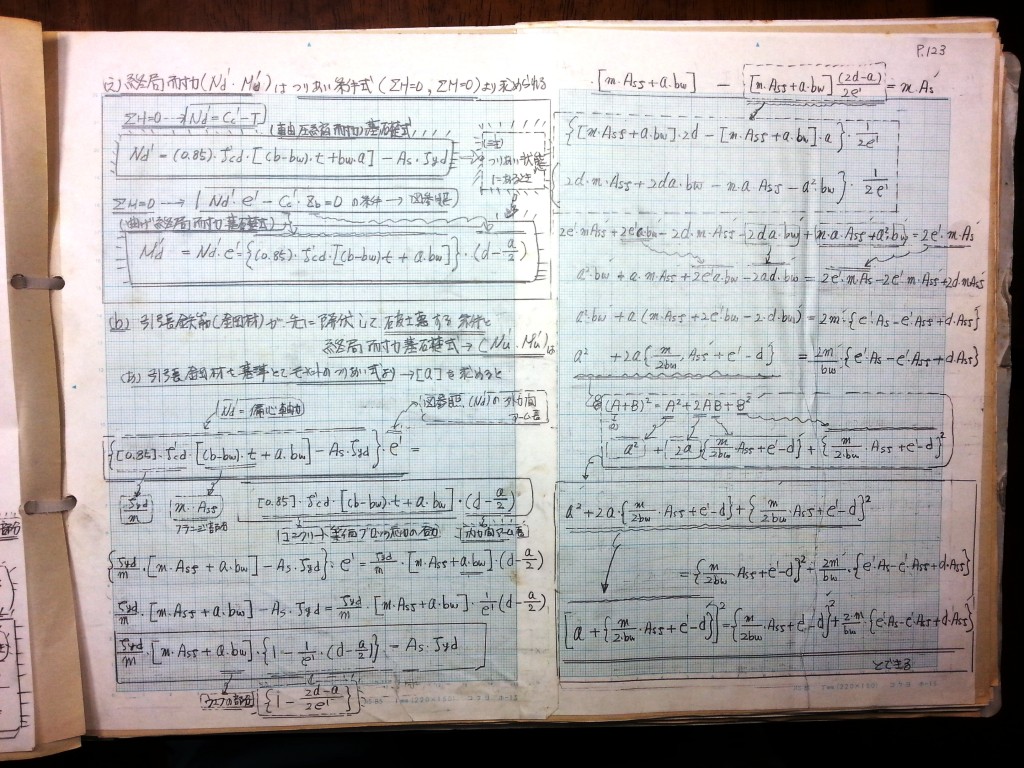 P.123
(え) 終局耐力(Nd'・Md')はつりあい条件式(ΣH=0, ΣM=0)より求められる
ΣH=0 → Nd'=Cc'-T
(軸圧縮耐力基礎式)
Nd' = (0.85)・fcd'・[(b-bw)・t+bw・a] - As・fyd
つりあい状態
ΣM=0 → Nd'・e' - Cc'・Zb=0 の条件→図参照
(曲げ終局耐力基礎式)
Md' = Nd'・e' = {(0.85)・fcd'・[(b-bw)・t + a・bw]}・(d-a/2)
(b) 引張鉄筋(鋼材)が先に降伏して破壊する条件と
終局耐力基礎式→(Nu'・Mu')は
(あ) 引張鋼材を基準としてのつりあい式より→[a]を求めると
Nd'=偏心軸力
図参照(Nd')の外力間アーム長
{[0.85]・fcd'・[(b-bw)・t+a・bw] - As・fyd}・e' =
fyd/m
m・Asf
フランジ部分
[0.85]・fcd'・[(b-bw)・t+a・bw]・(d-a/2)
コンクリート等価ブロック応力の合力
内力間アーム長
{fyd/m・[m・Asf+a・bw] - As・fyd}・e' = fyd/m・[m・Asf+a・bw]・(d-a/2)
fyd/m・[m・Asf+a・bw] - As・fyd = fyd/m・[m・Asf+a・bw]・1/e'(d-a/2)
fyd/m・[m・Asf+a・bw]・{1-1/e'・(d-a/2)} = As・fyd
ウェブの部分
{1-(2d-a)/2e'}
[m・Asf+a・bw] - [m・Asf+a・bw](2d-a)/2e' = m・As
{[m・Asf+a・bw]・2d-[m・Asf+a・bw]・a}・1/2e'
{2d・m・Asf+2da・bw-m・a・Asf-a²・bw}・1/2e'
2e'・mAsf+2e'a・bw-2d・m・Asf-2da・bw+m・a・Asf+a²・bw=2e'・m・As
a²・bw+a・m・Asf+2e'a・bw-2ad・bw=2e'・m・As-2e'm・Asf+2d・mAsf
a²・bw+a(m・Asf+2e'・bw-2・d・bw)=2m・{e'・As-e'・Asf+d・Asf}
a²+2a{m/2bw・Asf+e'-d} = 2m/bw・{e'・As-e'・Asf+d・Asf}
(A+B)²=A²+2AB+B²
(a²)+(2a){m/2bw・Asf+e'-d}+{m/2・bw・Asf+e'-d}²
a²+2a・{m/2bw・Asf+e'-d}+{m/2bw・Asf+e'-d}²
={m/2bw・Asf+e'-d}²+2m/bw・{e'・As-e'・Asf+d・Asf}
[a+{m/2・bw・Asf+e'-d}]²={m/2bw・Asf+e'-d}²+2・m/bw{e'・As-e'・Asf+d・Asf}
とできる